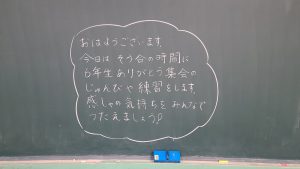 おはようございます。
今日は そう合の時間に
6年生ありがとう集会の
じゅんびや練習をします。
感しゃの気持ちを みんなで
つたえましょう♪